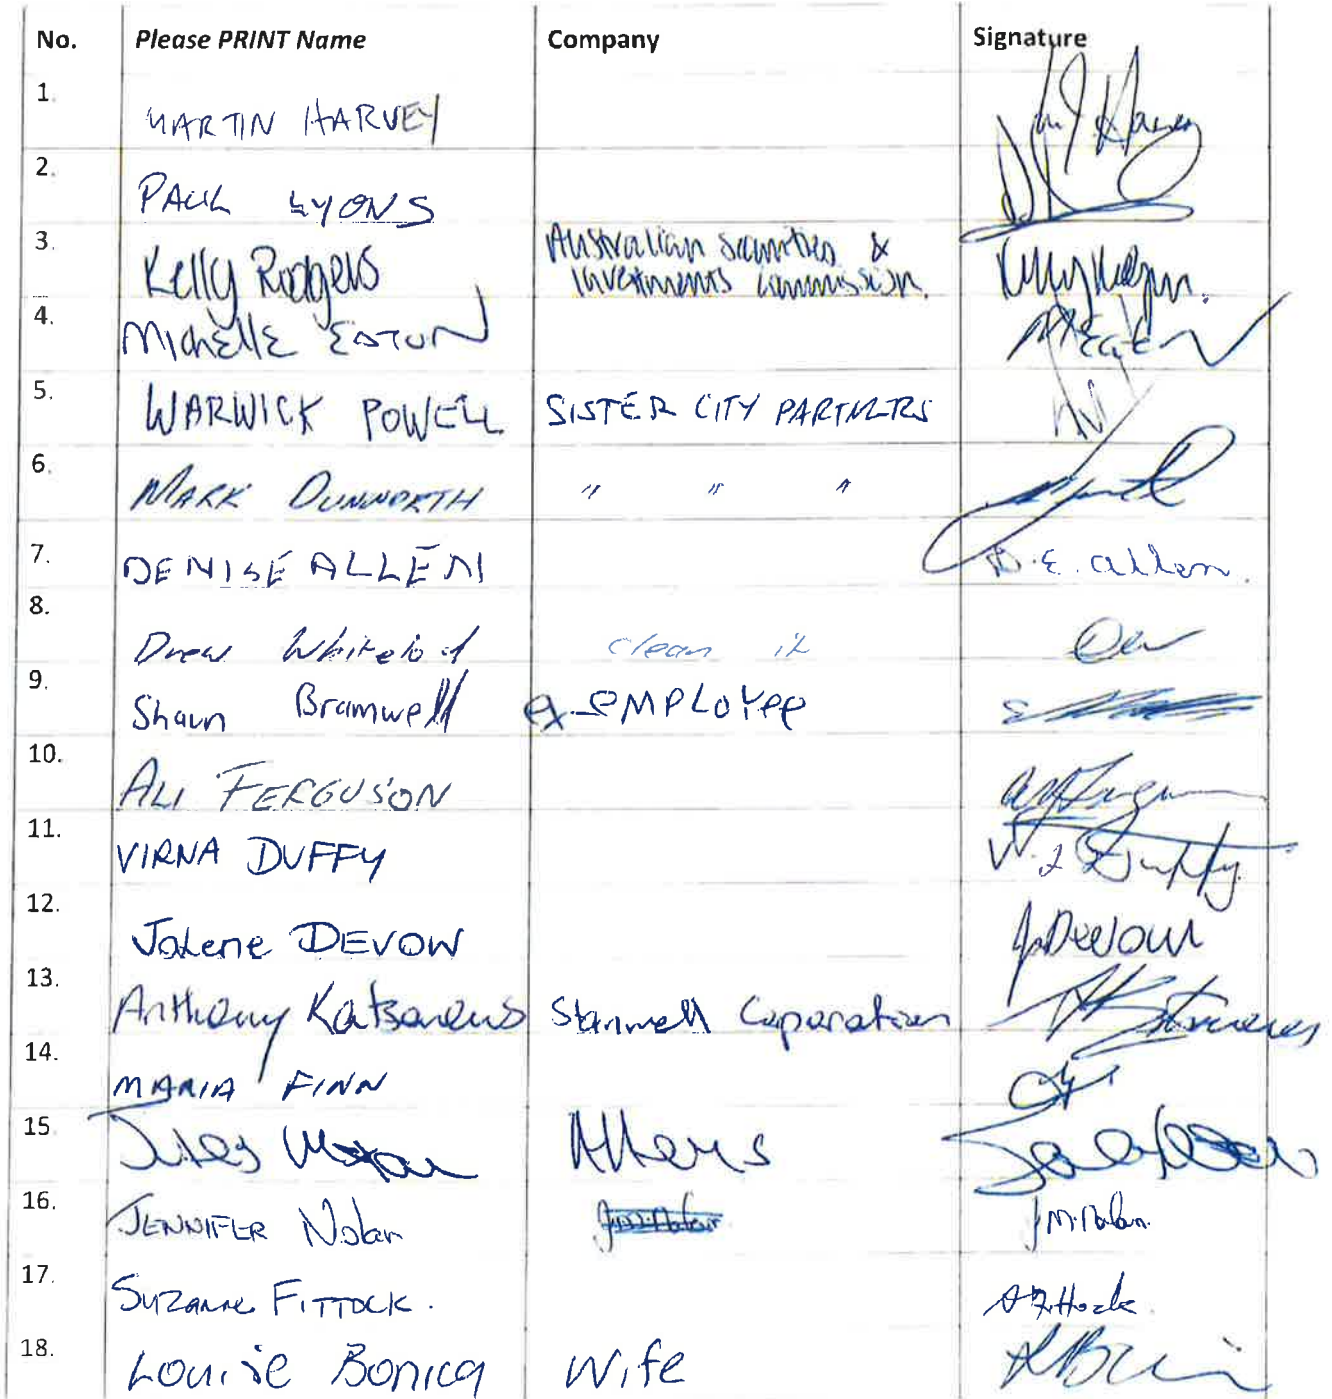 No. Please PRINT Name Company Signature
1. MARTIN HARVEY
2. PAUL LYONS
3. Kelly Rodgers Australian Securities &
Investments Commission.
4. Michelle EATON
5. WARWICK POWELL SISTER CITY PARTNERS
6. MARK DUNWORTH " " "
7. DENISE ALLEN D.E. Allen.
8. Drew clean it
9. Shaun Bramwell ex-employee
10. ALI FERGUSON
11. VIRNA DUFFY V. J Duffy
12. Jolene DEVOW J.Devow
13. Anthony Katsaneus Stanwell Coporation
14. MARIA FINN
15. Jules
16. JENNIFER Nolan J.M.Nolan.
17. Suzanne FITTOCK. S Fittock.
18. Louise Bonica Wife